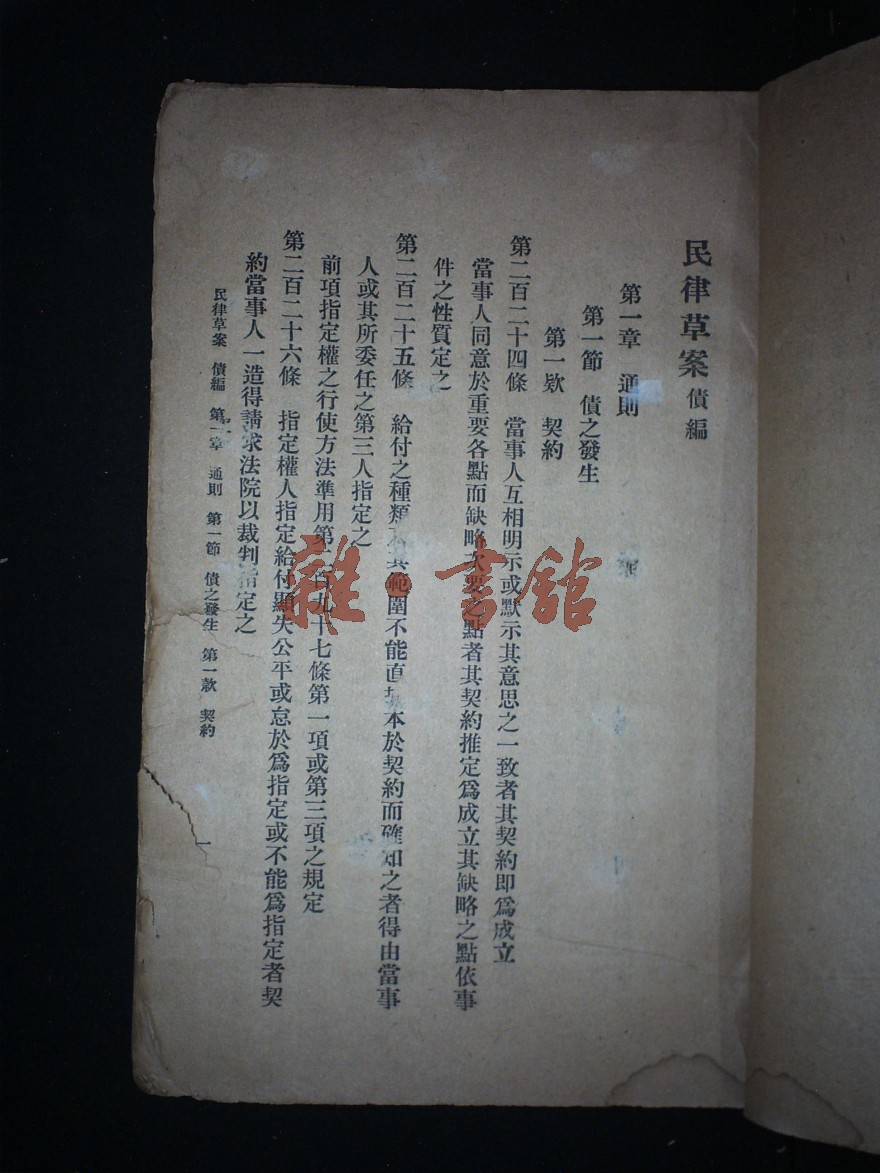 民律草案 債編
第一章 通則
第一節 債之發生
第一欵 契約
第二百二十四條 當事人互相明示或默示其意思之一致者其契約即爲成立
當事人同意於重要各點而缺略次要之點者其契約推定爲成立其缺略之點依事
件之性質定之
第二百二十五條 給付之種類 其範圍不能直接本於契約而確知之者得由當事
人或其所委任之第三人指定之
前項指定權之行使方法準用第二百九十七條第一項或第三項之規定
第二百二十六條 指定權人指定給付顯失公平或怠於爲指定或不能爲指定者契
約當事人一造得請求法院以裁判指定之
民律草案 債編 第一章 通則 第一節 債之發生 第一款 契約 一
雜·書館